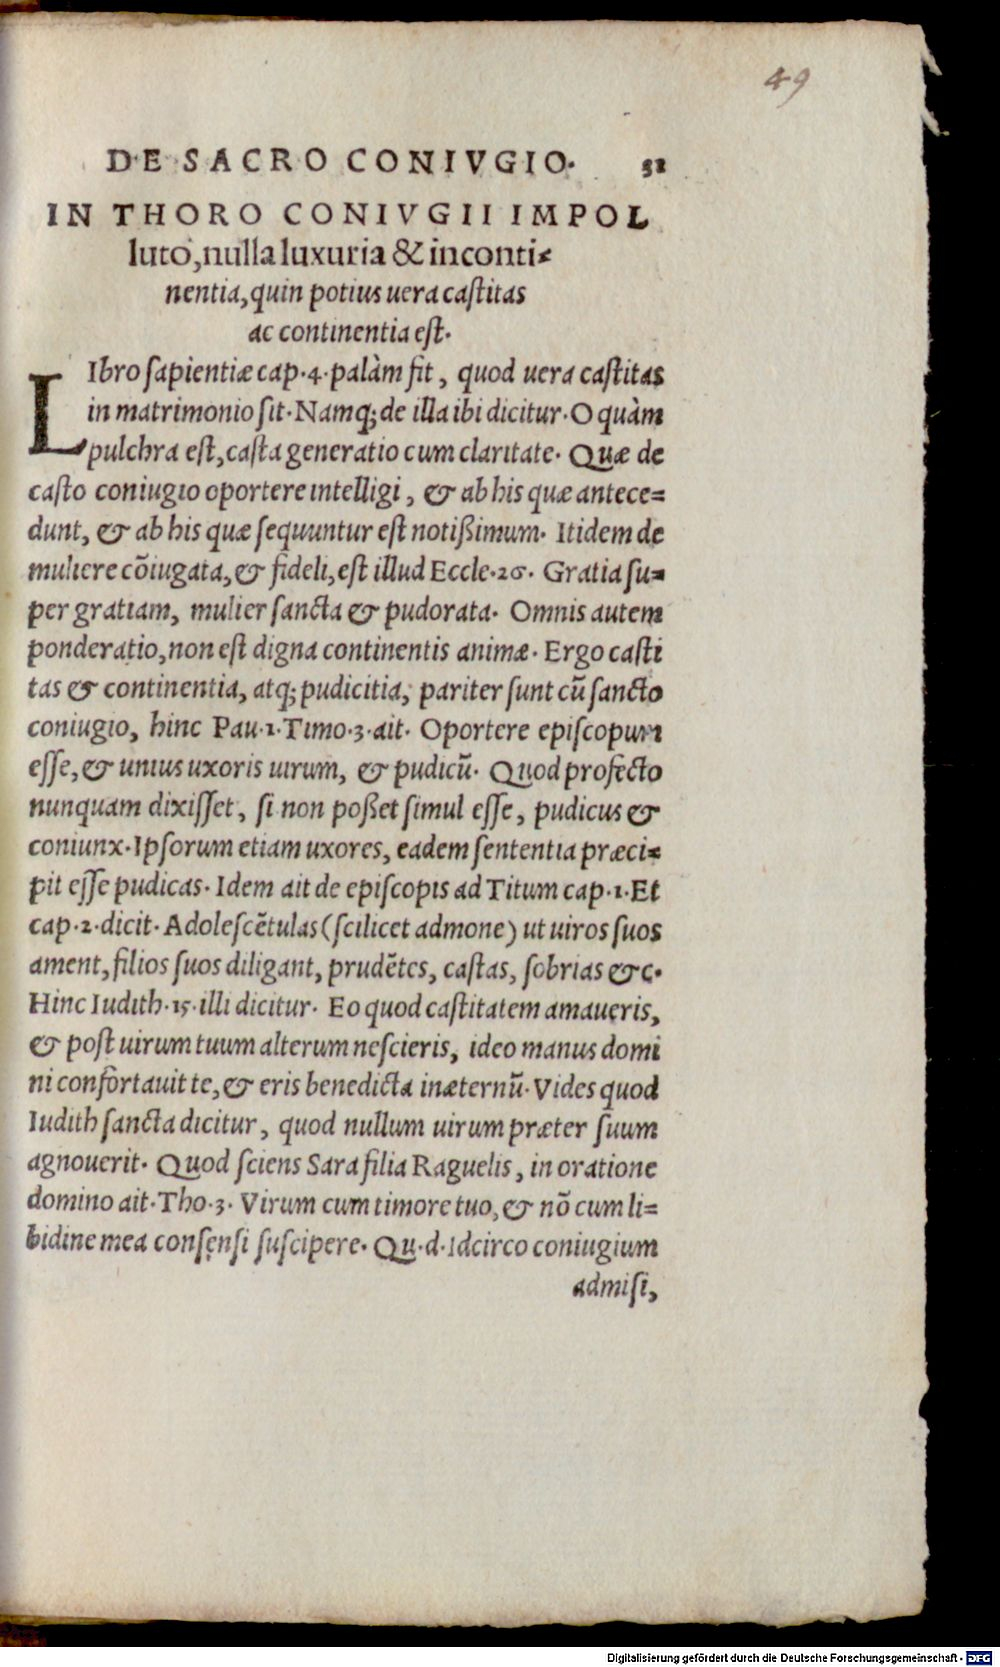 49
DE SACRO CONIVGIO. 52
IN THORO CONIVGII IMPOL
luto, nulla luxuria & inconti-
nentia, quin potius uera castitas
ac continentia est.
LIbro sapientiæ cap. 4. palàm fit, quod uera castitas
in matrimonio sit. Namq; de illa ibi dicitur. O quàm
pulchra est, casta generatio cum claritate. Quæ de
casto coniugio oportere intelligi, & ab his quæ antece=
dunt, & ab his quæ sequuntur est notißimum. Itidem de
muliere cõiugata, & fideli, est illud Eccle. 26. Gratia su=
per gratiam, mulier sancta & pudorata. Omnis autem
ponderatio, non est digna continentis animæ. Ergo casti
tas & continentia, atq; pudicitia, pariter sunt cũ sancto
coniugio, hinc Pau. 1. Timo. 3. ait. Oportere episcopum
esse, & unius uxoris uirum, & pudicũ. Quod profecto
nunquam dixisset, si non poßet simul esse, pudicus &
coniunx. Ipsorum etiam uxores, eadem sententia præci=
pit esse pudicas. Idem ait de episcopis ad Titum cap. 1. Et
cap. 2. dicit. Adolescẽtulas (scilicet admone) ut uiros suos
ament, filios suos diligant, prudẽtes, castas, sobrias &c.
Hinc Iudith. 15. illi dicitur. Eo quod castitatem amaueris,
& post uirum tuum alterum nescieris, ideo manus domi
ni confortauit te, & eris benedicta inæternũ. Vides quod
Iudith sancta dicitur, quod nullum uirum præter suum
agnouerit. Quod sciens Sara filia Raguelis, in oratione
domino ait. Tho. 3. Virum cum timore tuo, & nõ cum li=
bidine mea consensi suscipere. Qu. d. Idcirco coniugium
admisi,
Digitalisierung gefördert durch die Deutsche Forschungsgemeinschaft - DFG